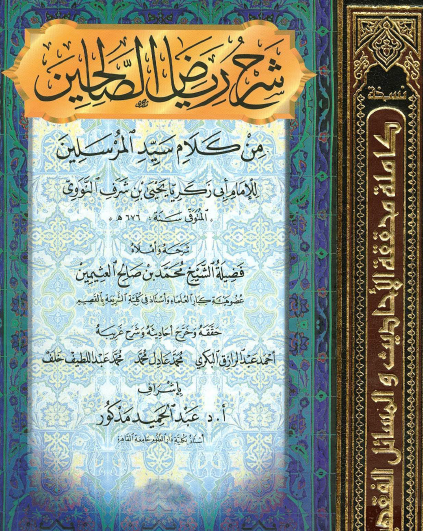 شرح رياض الصالحين
من كلام سيد المرسلين
للإمام أبي زكريا يحيى بن شرف النووي
المتوفى سنة: ٦٧٦ هـ
شرحه وأملاه
فضيلة الشيخ محمد بن صالح العثيمين
عضو هيئة كبار العلماء وأستاذ في كلية الشريعة بالقصيم
حققه وخرج أحاديثه وشرح غريبه
أحمد عبد الرازق البكري محمد عادل محمد محمد عبد اللطيف خلف
بإشراف
أ. د عبد الحميد مدكور
أستاذ بكلية دار العلوم جامعة القاهرة
نسخة
كاملة محققة الأحاديث والمسائل الفقه